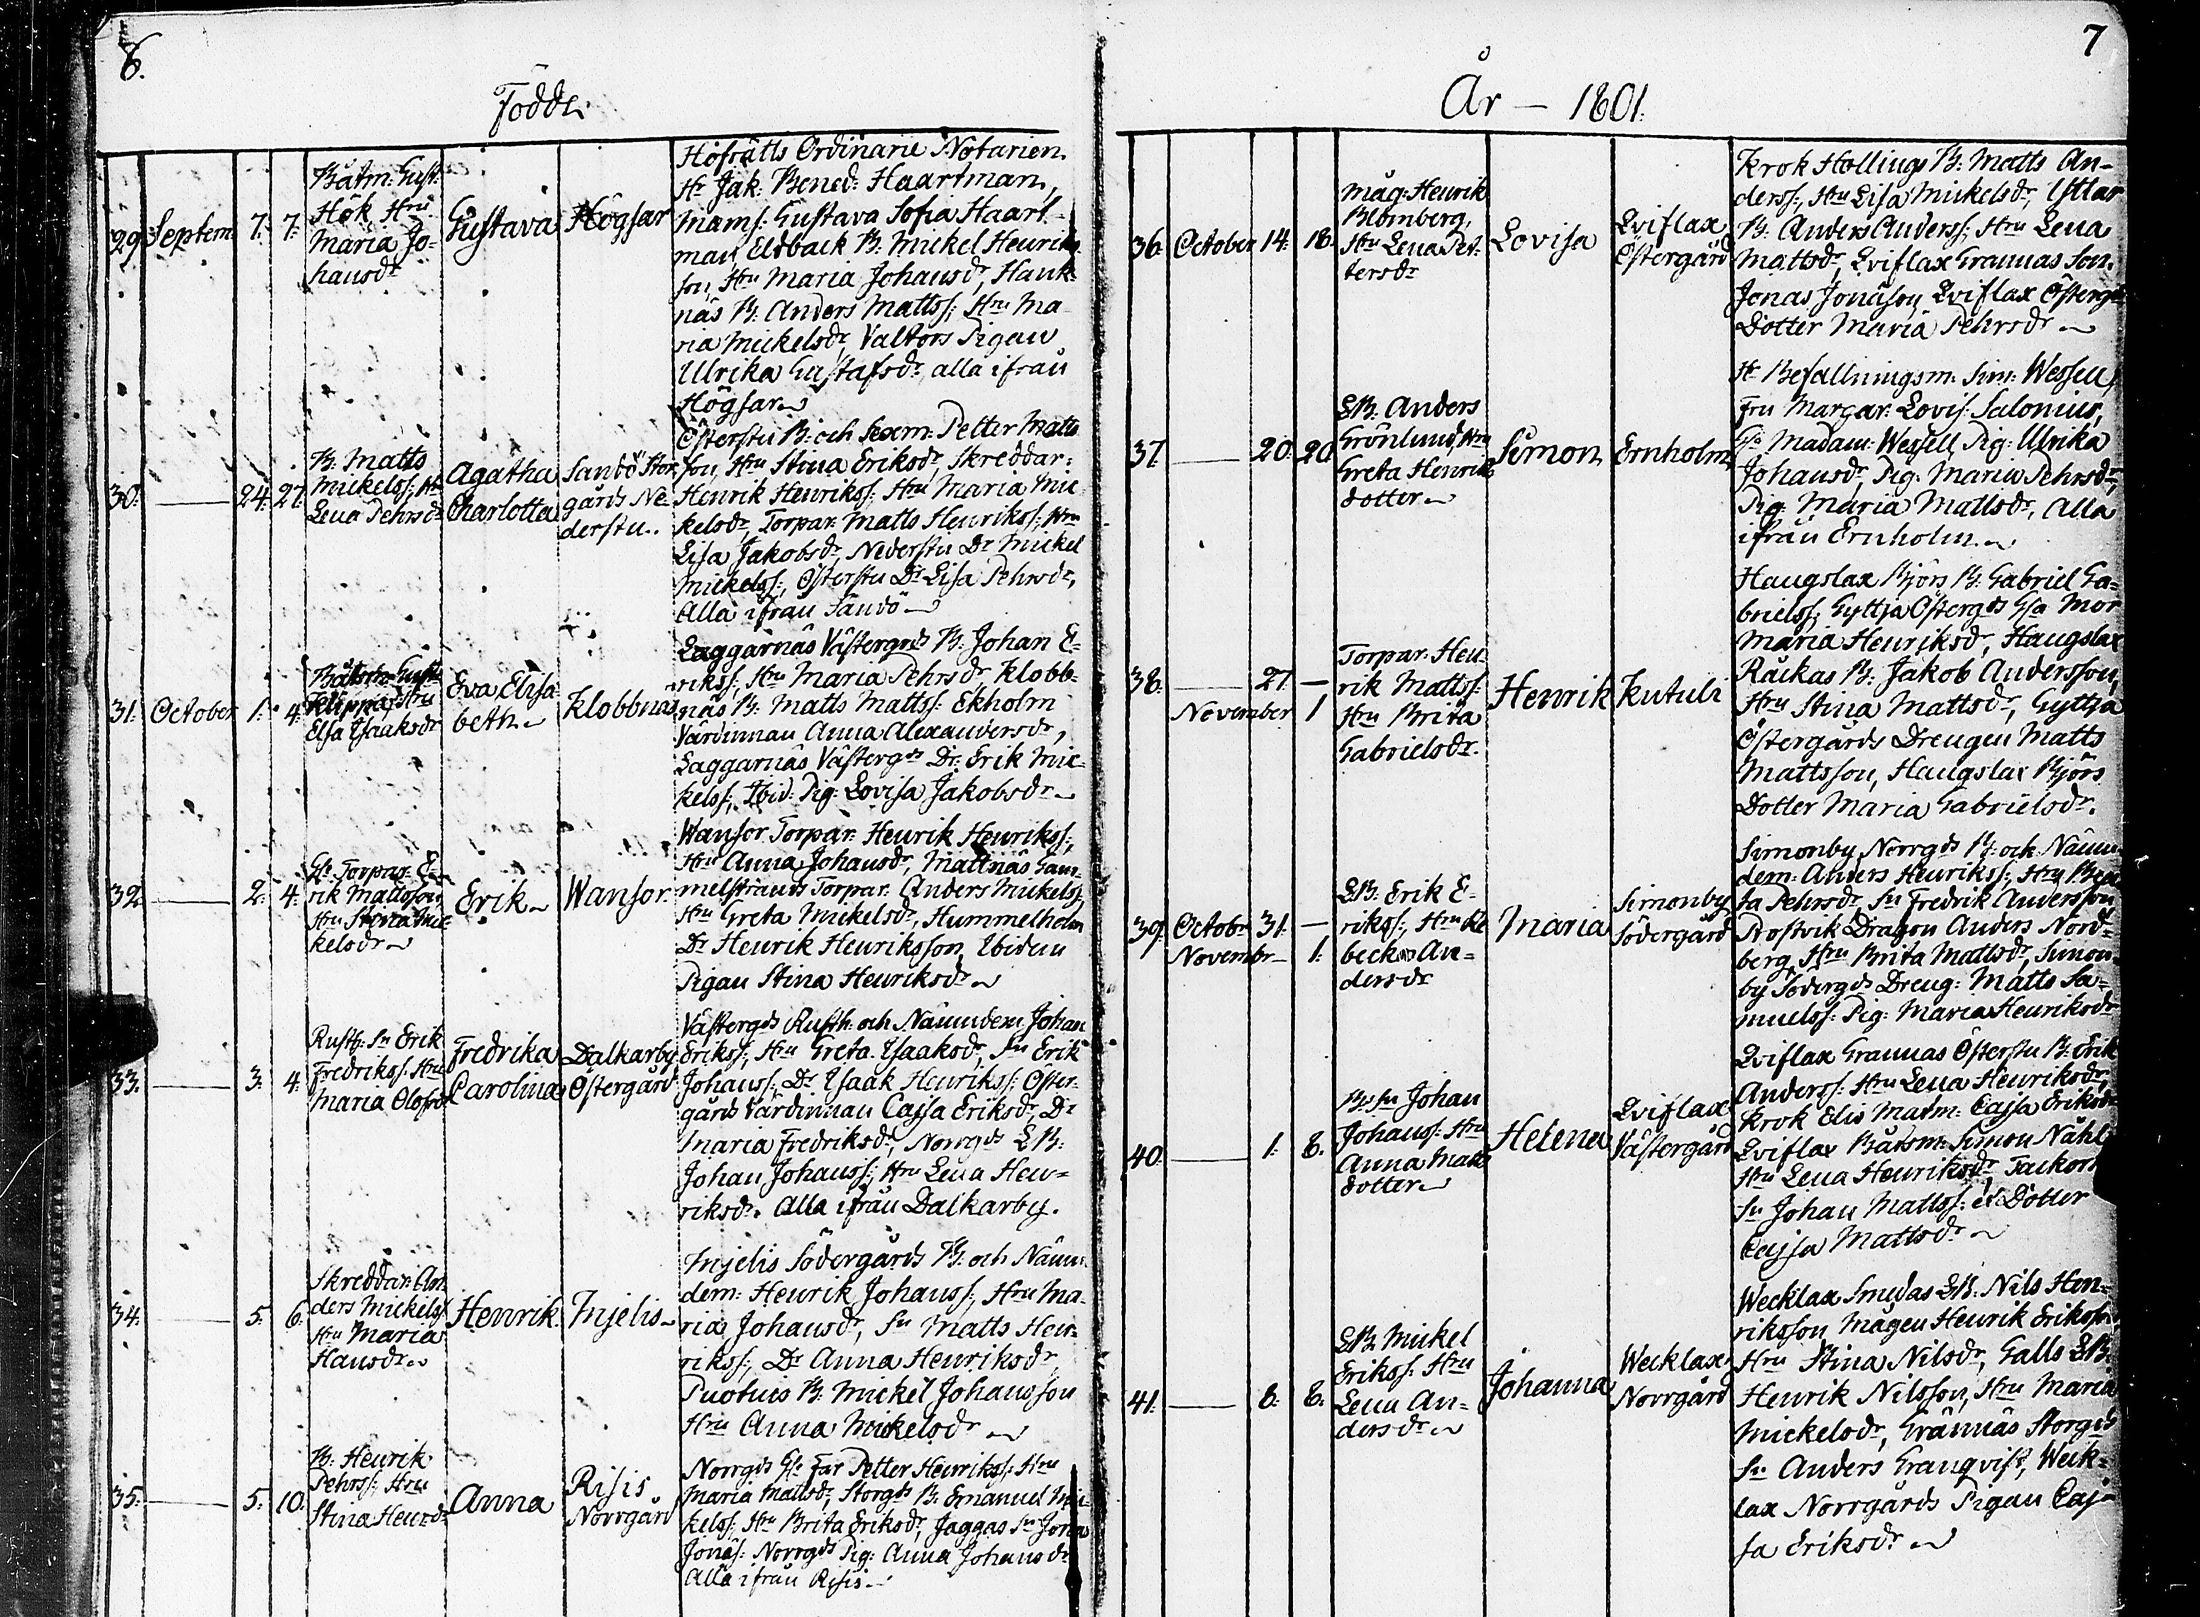 6.
Födde
29. Septem. 7. 7.
Båtm: Gust:
Hök Hru
Maria Jo-
hansdr
Gustava
Högsar
Hofrätts Ordinarie Notarien
Hr Jak: Bened: Haartman,
Mams: Gustava Sofia Haart-
man, Eldback B: Mickel Henriks
son, Hru Maria Johansdr, Hank-
näs B: Anders Mattss; Hru Ma-
ria Mickelsdr, Valtors Pigan
Ulrika Gustafsdr, alla ifrån
Högsar
30. — 24. 27.
B: Matts
Mickelss; Hr
Lena Pehrsdr
Agatha
Charlotta
Sandö Stor
gårds Ne-
derstu.
Österstu B: och Sexm: Petter Matts
son, Hru Stina Eriksdr, Skreddar:
Henrik Henrikss; Hru Maria Mic-
kelsdr, Torpar: Matts Henrikss; Hru
Lisa Jakobsdr, Nederstu Dr Mickel
Mickelss; Österstu Dr Lisa Pehrsdr,
Alla ifrån Sandö
31. October 1. 4.
Båtsm: Gust:
Klippa, Hru
Elsa Isaaksdr
Eva Elisa
beth
Klobbnäs
Laggarnäs Västergrds B: Johan E-
rikss; Hru Maria Pehrsdr, Klobb-
näs B: Matts Mattss: Ekholm
Värdinnan Anna Alexandersdr,
Laggarnäs Västergds Dr: Erik Mic-
kelss; Ibid: Pig: Lovisa Jakobsdr
32. — 2. 4.
Gle Torpar: E-
rik Mattsson,
Hru Stina Mic-
kelsdr
Erik
Wansor
Wansor Torpar: Henrik Henrikss;
Hru Anna Johansdr, Mattnäs Gam-
melstrands Torpar: Anders Mickelss;
Hru Greta Mickelsdr, Hummelholm
Dr Henrik Henriksson, Ibidem
Pigan Stina Henriksdr
33. — 3. 4.
Rusth: Sn Erik
Fredrikss: Hru
Maria Olofsdr
Fredrika
Carolina
Dalkarby
Östergård
Västergds Rusth: och Nämndem: Johan
Erikss; Hru Greta Isaaksdr, Sn Erik
Johanss; Dr Isaak Henrikss; Öster-
gårds Värdinnan Cajsa Eriksdr, Dr
Maria Fredriksdr, Norrgds LB:
Johan Johanss; Hru Lena Hen-
riksdr. Alla ifrån Dalkarby.
34. — 5. 6.
Skreddar: An
ders Mickelss
Hru Maria
Hansdr
Henrik
Injelis
Injelis Södergårds B: och Nämn-
dem: Henrik Johanss; Hru Ma-
ria Johansdr, Sn Matts Hen-
rikss; Dr Anna Henriksdr,
Puotuis B: Mickel Johansson
Hru Anna Mickelsdr
35. — 5. 10.
B: Henrik
Pehrss; Hru
Stina Henrsdr
Anna
Risis
Norrgård
Norrgds Gle Far Petter Henrikss; Hru
Maria Mattsdr, Storgds B: Emanuel Mic-
kelss; Hru Brita Eriksdr, Jaggas Sn Jonas
Jonäs: Norrgds Pig: Anna Johansdr
Alla ifrån Risis
7
År — 1801.
36. October 14. 18.
Måg: Henrik
Blomberg,
Hru Lena Pet-
tersdr
Lovisa
Lviflax
Östergård
Krok Hollings B: Matts An-
derss; Hru Lisa Mickelsdr, Yttar
B: Anders Anderss; Hru Lena
Mattsdr, Lviflax Grannas Son
Jonas Jonäson, Lviflax Österg
Dotter Maria Pehrsdr
37. — 20. 20.
LB: Anders
Grönlund, Hru
Greta Henriks
dotter
Simon
Ernholm
Hr Befallningsm: Sim: Wessell,
Fru Margar: Lovis: Salonius,
Gla Madam: Wessell, Pig: Ulrika
Johansdr, Pig: Maria Pehrsdr,
Pig: Maria Mattsdr, Alla
ifrån Ernholm
38. — 27. —
November 1
Torpar: Hen-
rik Mattss:
Hru Brita
Gabrielsdr.
Henrik
Kutuli
Haugslax Björs B: Gabriel Ga-
brielss; Gyttja Östergds Gla Mor
Maria Henriksdr, Haugslax
Räckas B: Jakob Andersson,
Hru Stina Mattsdr, Gyttja
Östergårds Drengen Matts
Mattsson, Haugslax Björs
Dotter Maria Gabrielsdr.
39. Octobr 31. —
Novembr — 1.
LB: Erik E-
rikss; Hru Re
becka An-
dersdr
Maria
Simonby
Södergård
Simonby Norrgds B: och Nämn-
dem: Anders Henrikss; Hru Bea
ta Pehrsdr, Sn Fredrik Andersson
Prostvik Dragon Anders Nord-
berg, Hru Brita Mattsdr, Simon-
by Södergds Dreng: Matts Sa-
muelss: Pig: Maria Henriksdr
40. — 1. 8.
B: Sn Johan
Johanss: Hru
Anna Matts
dotter
Helena
Lviflax
Västergård
Lviflax Grannas Österstu B: Erik
Anderss: Hru Lena Henriksdr,
Krok Elis Matm: Cajsa Eriksdr
Lviflax Båtsm: Simon Nåhl
Hru Lena Henriksdr, Tackork
Sn Johan Mattss: et Dotter
Cajsa Mattsdr
41. — 8. 8.
LB: Mickel
Erikss: Hru
Lena An-
dersdr
Johanna
Wecklax
Norrgård
Wecklax Smedas LB: Nils Hen-
riksson, Mågen Henrik Eriksson
Hru Stina Nilsdr, Galls LB:
Henrik Nilsson, Hru Maria
Mickelsdr, Grännäs Storgds
Sn Anders Granqvist, Weck-
lax Norrgårds Pigan Caj-
sa Eriksdr